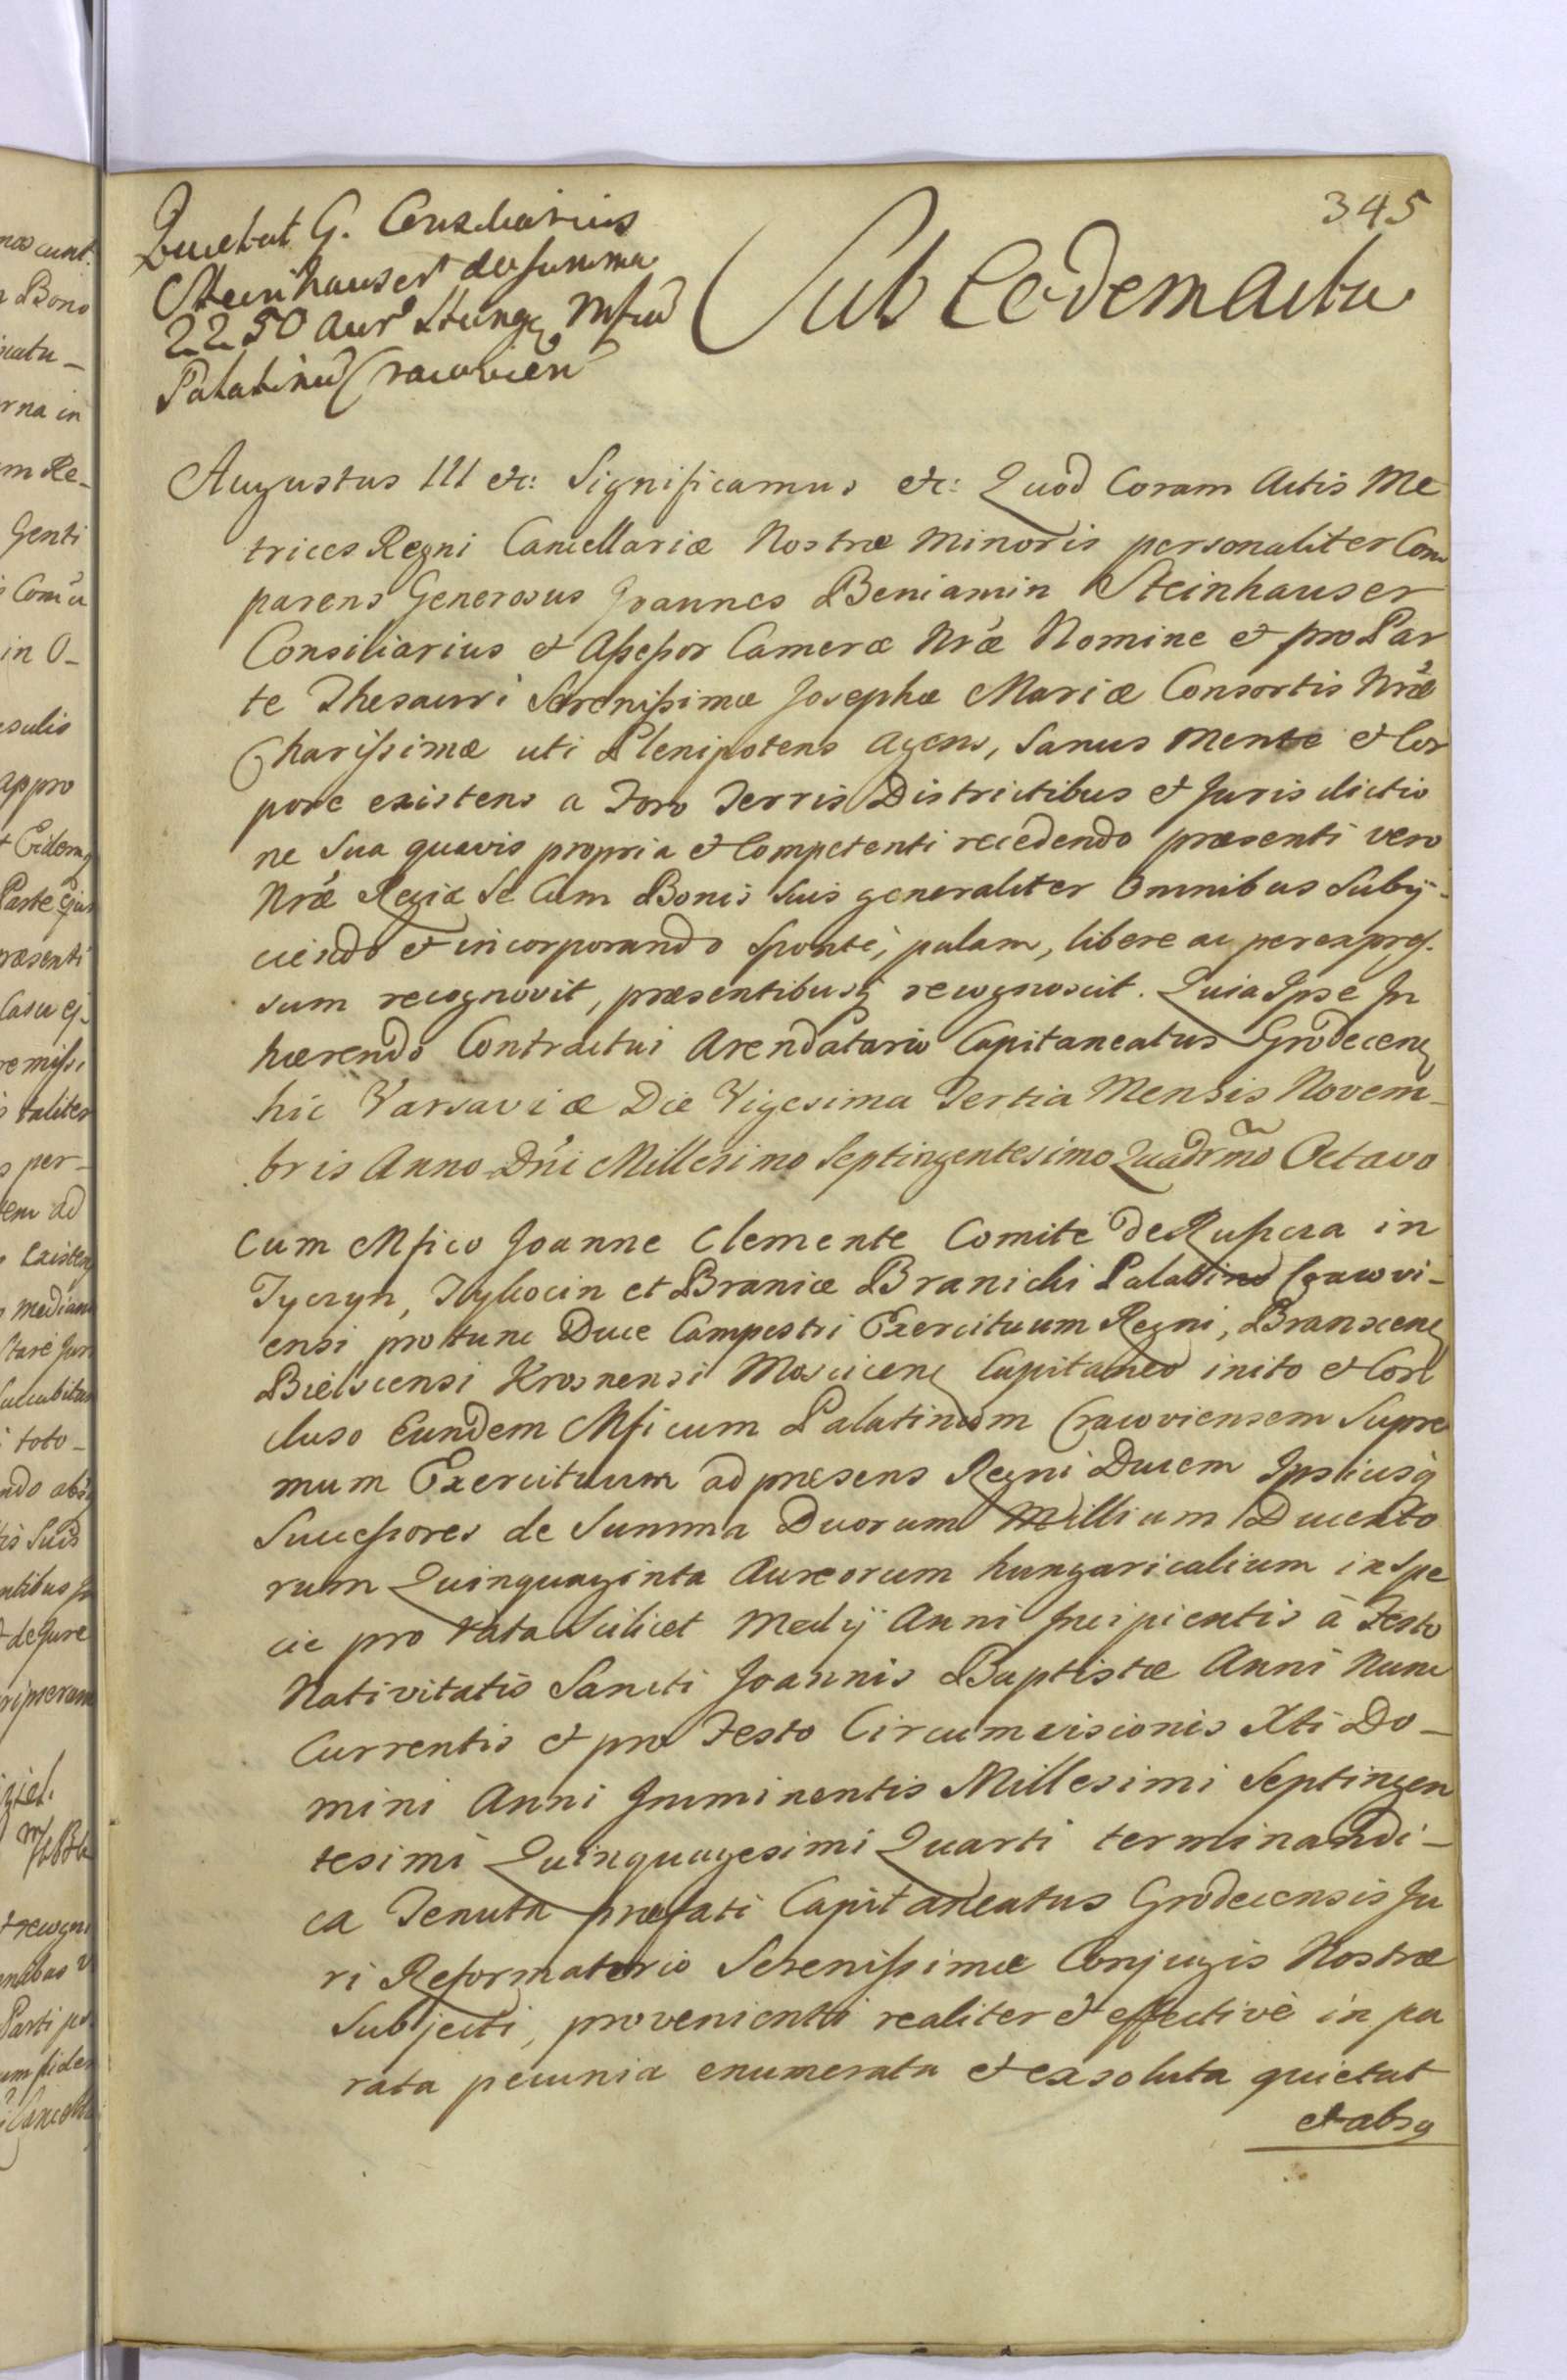 345
Quietat G. Consiliarius
Steinhauser de summa
2250 aur' Hung. Mficū
Palatinū Cracovien
Sub Eodem Actu
Augustus III etc: Significamus etc: Quod Coram Actis Me
trices Regni Cancellariæ Nostræ Minoris personaliter Com
parens Generosus Joannes Beniamin Steinhauser
Consiliarius et Assessor Cameræ Nræ Nomine et pro Par
te Thesauri Serenissimæ Josephæ Mariæ Consortis Nræ
Charissimæ uti Plenipotens agens, Sanus Mente et Cor
pore existens a Foro Terris Districtibus et Jurisdictio
ne Sua quavis propria et Competenti recedendo præsenti vero
Nræ Regiæ Se Cum Bonis Suis generaliter Omnibus Subij-
ciendo et incorporando Sponte, palam, libere ac per expres-
sum recognovit, præsentibusq recognoscit. Quia Ipse In
hærendo Contractui Arendatorio Capitaneatus Grodecens
hic Varsaviæ Die Vigesima Tertia Mensis Novem-
bris Anno Dni Millesimo Septingentesimo Quadrmo Octavo
Cum Mfico Joanne Clemente Comite de Ruscza in
Tyczyn, Tykocin et Branice Branicki Palatino Cracovi-
ensi pro tunc Duce Campestri Exercituum Regni, Branscens
Bielscensi Krosnensi Moscicens Capitaneo inito et Con
cluso Eundem Mficum Palatinum Cracoviensem Supre
mum Exercituum ad præsens Regni Ducem Ipsiusq
Successores de Summa Duorum Millium Ducento
rum Quinquaginta Aureorum hungaricalium in Spe
cie pro rata Scilicet Medij Anni Incipientis à Festo
Nativitatis Sancti Joannis Baptistæ Anni Nunc
Currentis et pro Festo Circumcisionis Xti Do-
mini Anni Imminentis Millesimi Septingen
tesimi Quinquagesimi Quarti terminandi-
ca Tenuta præfati Capitaneatus Grodecensis Ju
ri Reformatorio Serenissimæ Conjugis Nostræ
Subjecti, provenienti realiter et effectivè in pa
rata pecunia enumerata et exsoluta quietat
et absq